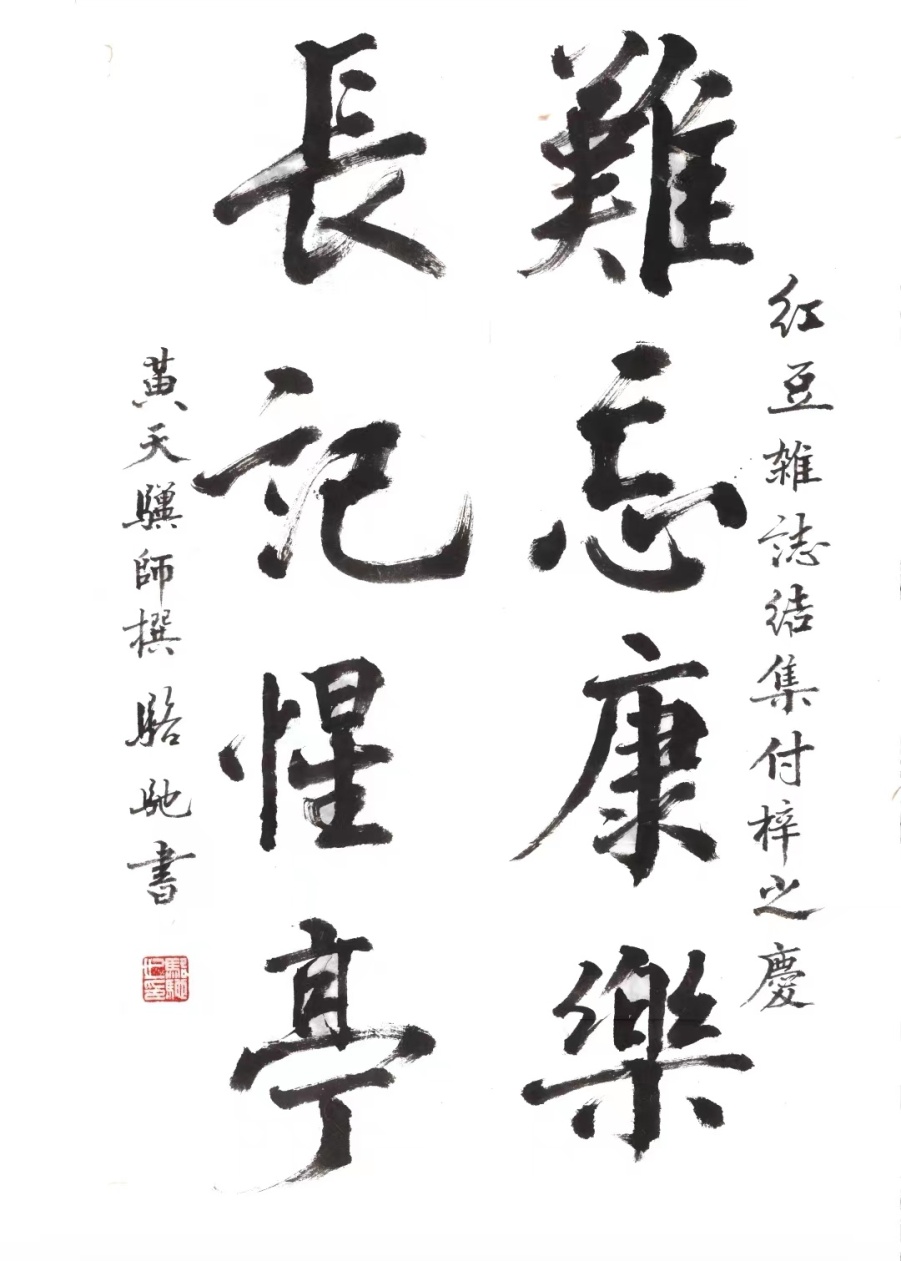 紅豆雜誌結集付梓之慶
難忘康樂
長記惺亭
黃天驥師撰 駱馳書